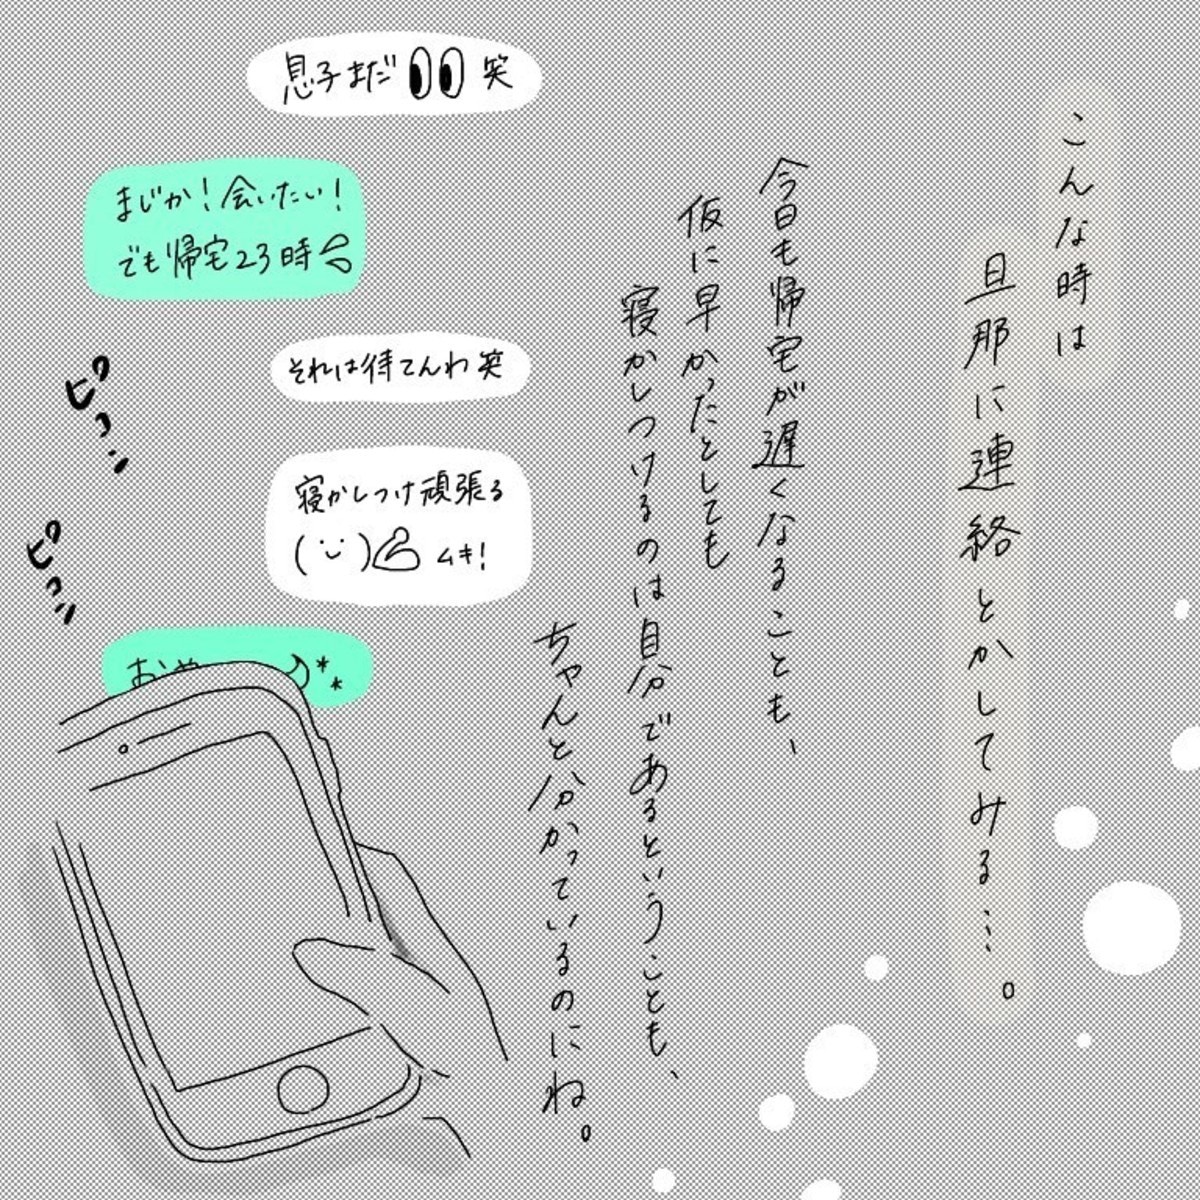 こんな時は
旦那に連絡とかしてみる…。
今日も帰宅が遅くなることも、
仮に早かったとしても
寝かしつけるのは自分であるということも、
ちゃんと分かっているのにね。
息子まだ👀笑
まじか！会いたい！
でも帰宅23時💨
それは待てんわ笑
寝かしつけ頑張る
(¨̮)💪ムキ！
ピコン
ピコン
おや